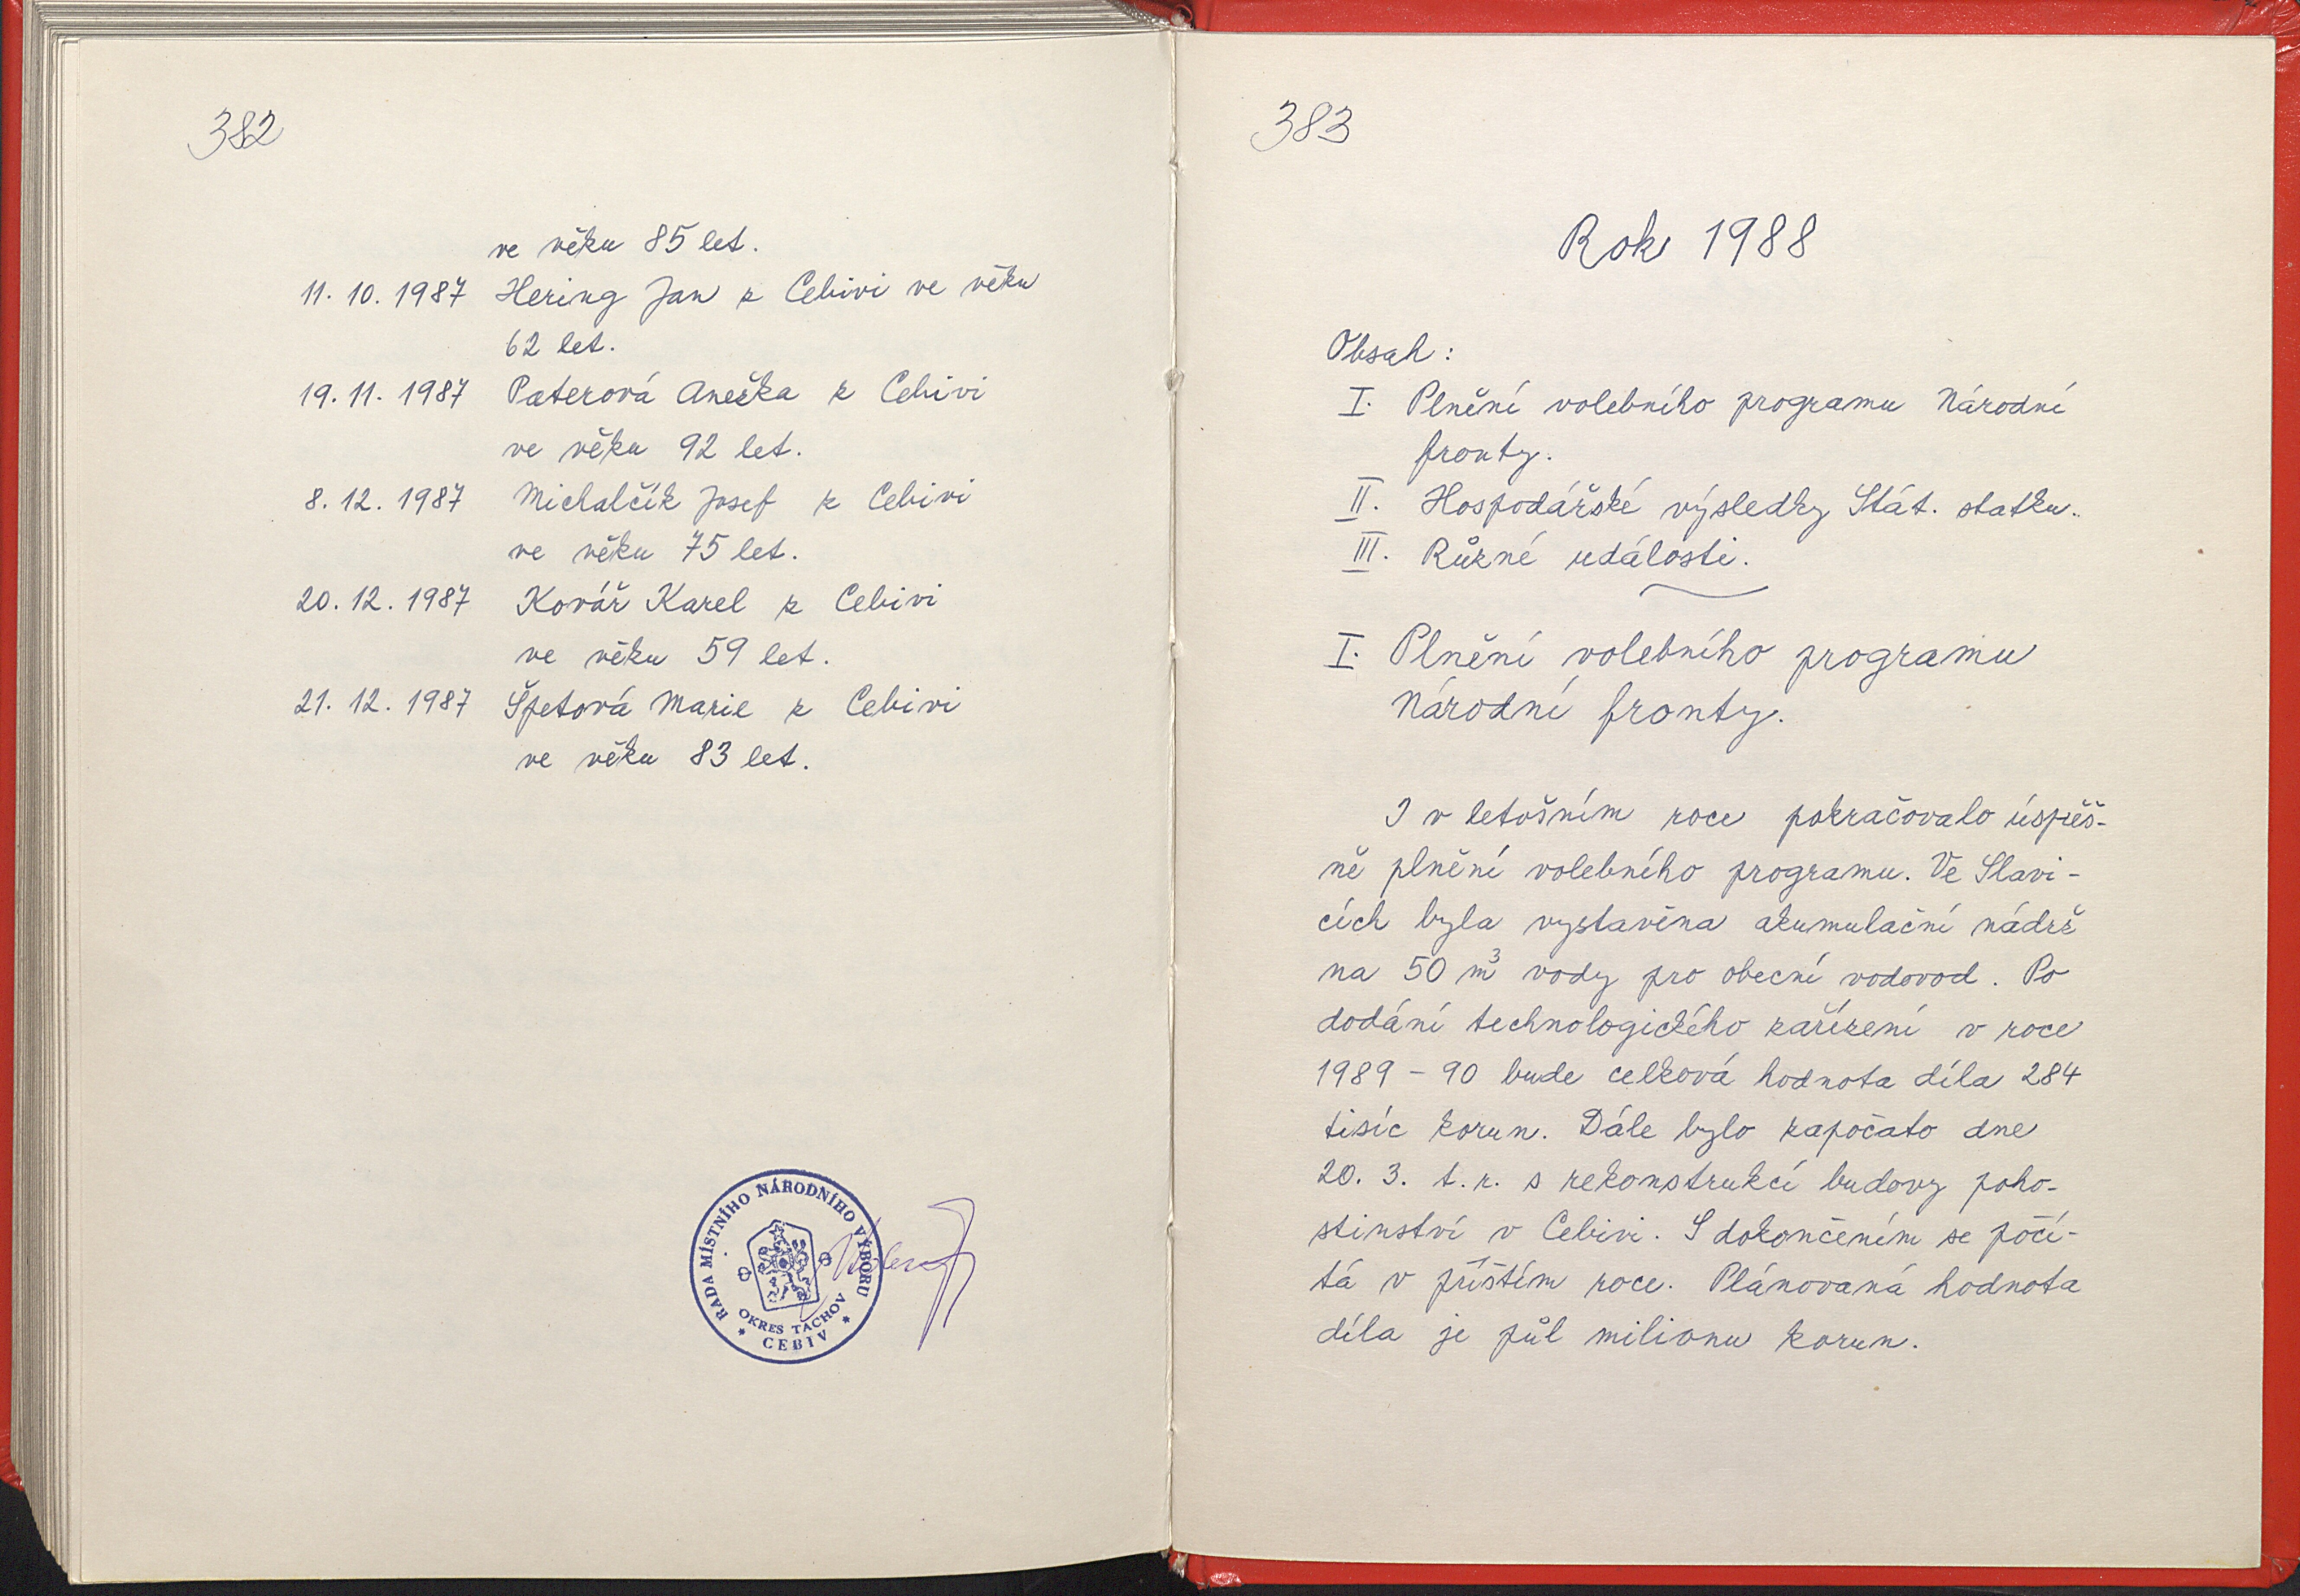 382
ve věku 85 let.
11. 10. 1987 Hering Jan z Cebivi ve věku
62 let.
19. 11. 1987 Paterová Anežka z Cebivi
ve věku 92 let.
8. 12. 1987 Michalčík Josef z Cebivi
ve věku 75 let.
20. 12. 1987 Kovář Karel z Cebivi
ve věku 59 let.
21. 12. 1987 Špetová Marie z Cebivi
ve věku 83 let.
RADA MÍSTNÍHO NÁRODNÍHO VÝBORU
OKRES TACHOV
* CEBIV *
383
Rok 1988
Obsah:
I. Plnění volebního programu Národní
fronty.
II. Hospodářské výsledky Stát. statku.
III. Různé události.
I. Plnění volebního programu
Národní fronty.
I v letošním roce pokračovalo úspěš-
ně plnění volebního programu. Ve Slavi-
cích byla vystavěna akumulační nádrž
na 50 m³ vody pro obecní vodovod. Po
dodání technologického zařízení v roce
1989 - 90 bude celková hodnota díla 284
tisíc korun. Dále bylo započato dne
20. 3. t. r. s rekonstrukcí budovy poho-
stinství v Cebivi. S dokončením se počí-
tá v příštím roce. Plánovaná hodnota
díla je půl milionu korun.